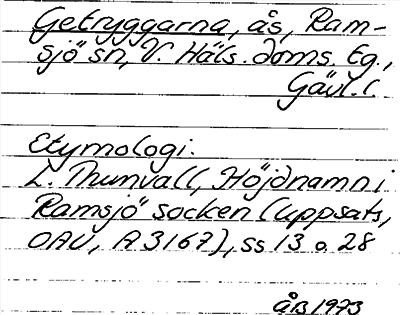 Getryggarna, ås, Ram-
sjö sn, V. Häls. doms. tg.,
Gävl. l.
Etymologi:
L. Thunvall, Höjdnamn i
Ramsjö socken (uppsats,
OAU, A3167), ss 13 o. 28
ÅB 1973